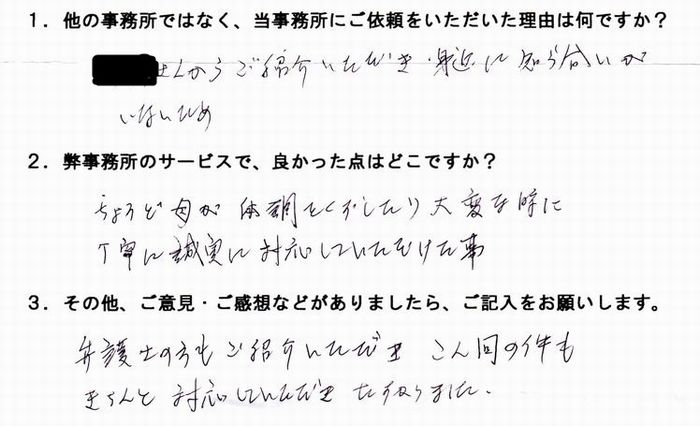 1．他の事務所ではなく、当事務所にご依頼をいただいた理由は何ですか？
さんからご紹介いただき、身近に知り合いが
いないため
2．弊事務所のサービスで、良かった点はどこですか？
ちょうど母が体調をくずしたり大変な時に
丁寧に誠実に対応していただけた事
3．その他、ご意見・ご感想などがありましたら、ご記入をお願いします。
弁護士の方もご紹介いただき こん回の件も
きちんと対応していただき たすかりました。